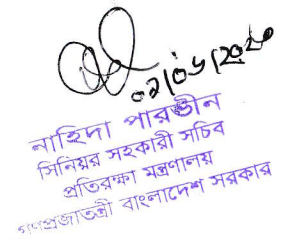 ০২/০৬/২০২০
নাহিদা পারভীন
সিনিয়র সহকারী সচিব
প্রতিরক্ষা মন্ত্রণালয়
গণপ্রজাতন্ত্রী বাংলাদেশ সরকার